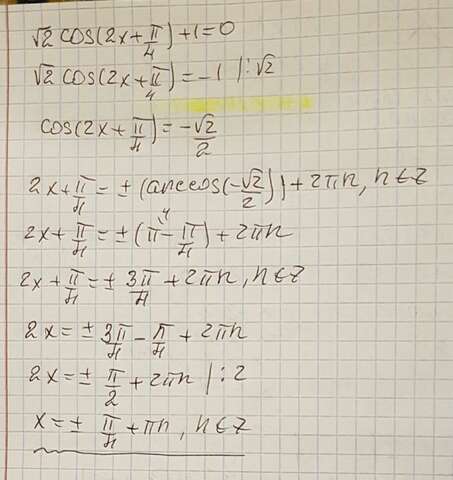 √2 cos(2x+π/4)+1=0
√2 cos(2x+π/4)=-1 |:√2
cos(2x+π/4)=-√2/2
2x+π/4=±(arccos(-√2/2))+2πn, n∈Z
2x+π/4=±(π-π/4)+2πn
2x+π/4=±3π/4+2πn, n∈Z
2x=±3π/4-π/4+2πn
2x=±π/2+2πn |:2
x=±π/4+πn, n∈Z